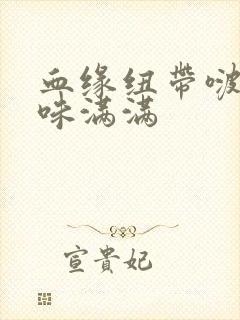 血缘纽带啵
味满满
宣貴妃